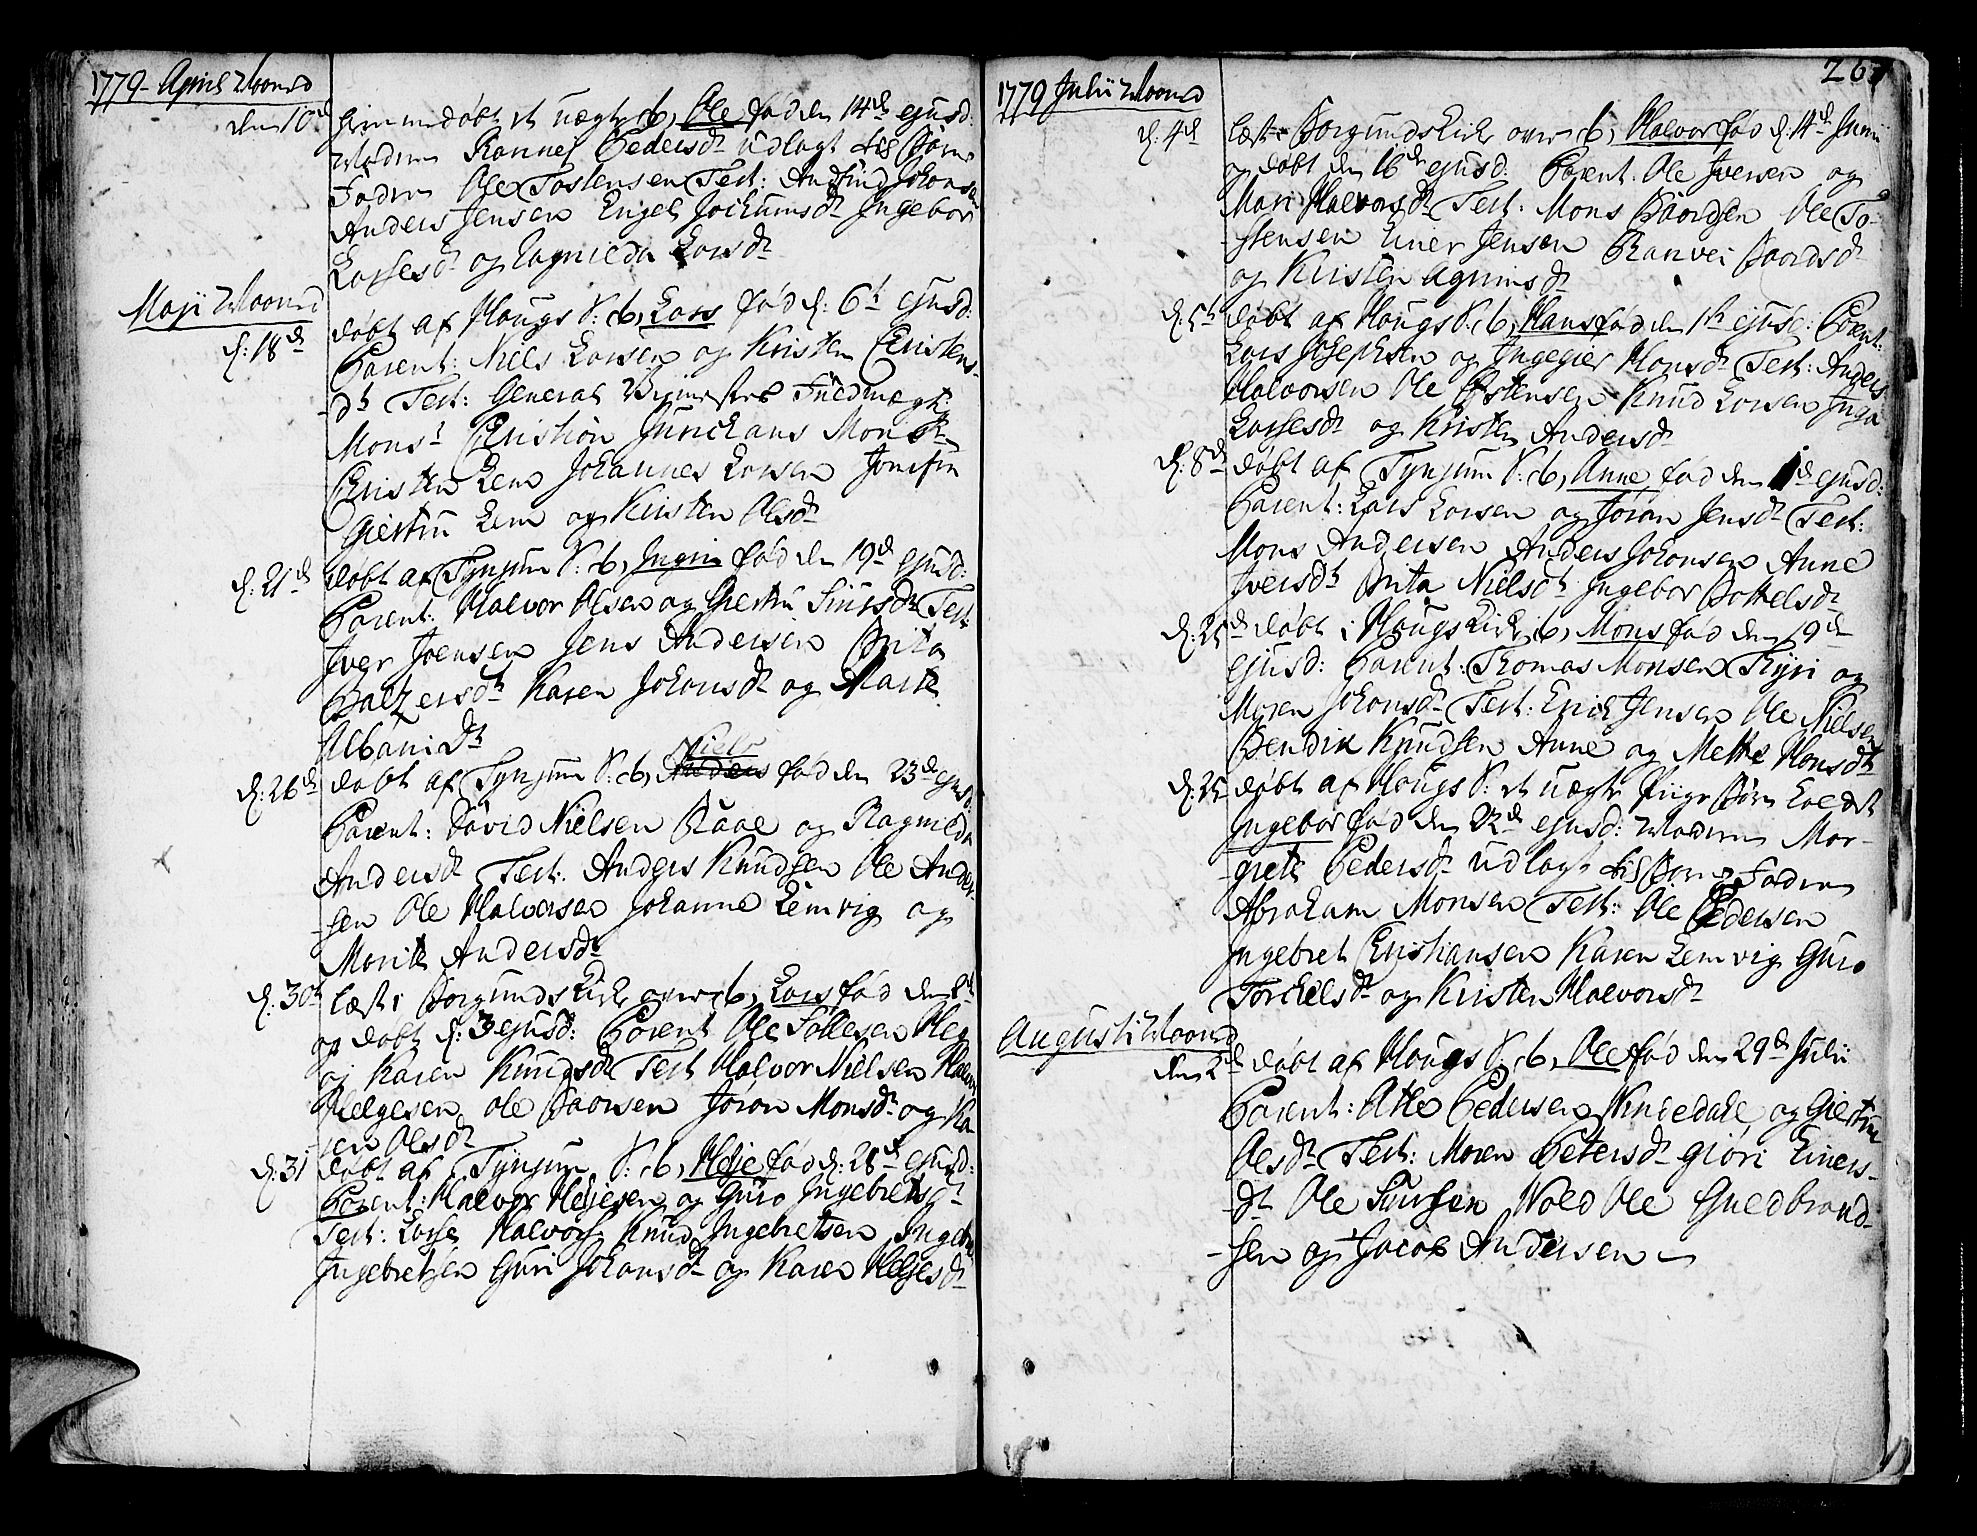 1779 April Maaned
den 10d hiemmedøbt et uægte b, Ole fød den 14de ejusd:
Modren Rannei Pedersdr udlagt til Barne
Fadren Ole Tostensen Test: Andfind Johansen
Anders Jensen Engel Jochumsdr Ingebor
Larsesdr og Ragnilda Larsdr
Maji Maaned
d: 18de døbt af Hougs S: b, Lars fød d: 6t ejusd:
Parent: Niels Larsen og Kristen Cristens-
dr Test: General Fuldmægt:
Monsr Cristian Monsr
Cristen Lem Johannes Larsen Jomfru
Giertru Lem og Kristen Olsdr
d: 21de døbt af Tynjum S: b, Ingri fød den 19de ejusd:
Parent: Halvor Olsen og Giertru Siursdr Test:
Iver Joensen Jens Andersen Brita
Baltzersdr Karen Johansdr og Marte
Albanidr
d: 26de døbt af Tynjum S: b, Anders Niels fød den 23de ejusd:
Parent: David Nielsen Raae og Ragnilda
Andersdr Test: Anders Knudsen Ole Ander-
-sen Ole Halvorsen Johanne Lemvig og
Marite Andersdr
d: 30te læst i Borgunds Kirke over b, Lars fød den 2d
og døbt d: 3 ejusd: Parent Ole Follesen Heg
og Karen Knudsdr Test Halvor Nielsen Halvor
Helgesen Ole Baarsen Jøran Monsdr og Ka
ren Olsdr
d: 31 døbt af Tynjum S: b, Helje fød d: 28de ejusd:
Parent: Halvor Heljesen og Guro Ingebretsdr
Test: Lasse Halvors: Knud Ingebretsen Ingebr
Ingebretsen Guri Johansdr og Karen Heljesdr
267
1779 Julii Maaned
d: 4de læst i Borgunds Kirke over b, Halvor fød d: 14de Junii
og døbt den 16de ejusd: Parent. Ole Iversen og
Mari Halvorsdr Test: Mons Baardsen Ole To-
-stensen Einer Jensen Ranvei Baardsdr
og Kristen
d: 5te døbt af Hougs S: b, Hans fød den 1te ejusd: Parent:
Lars Josephsen og Ingegier Hansdr Test: Anders
Halvorsen Ole Østensen Knud Larsen Inga
Larsesdr og Kristen Andersdr
d: 8de døbt af Tynjum S: b, Anne fød den 1de ejusd:
Parent: Lars Larsen og Jøran Jensdr Test:
Mons Andersen Anders Johansen Anne
Iversdr Brita Nielsdr Ingebor Bottelsdr
d: 25de døbt i Hougs Kirke b, Mons fød den 19de
ejusd: Parent: Thomas Monsen Thyri og
Maren Johansdr Test: Erich Jensen Ole Nielsen
Bendix Knudsen Anne og Mette Hansdr
d: 25 døbt af Hougs S: et uægte Pige Barn kaldet
Ingebor fød den 22de ejusd: Modren Mar-
-grete Pedersdr udlagt til Barne Fadren
Abraham Monsen Test: Ole Pedersen
Ingebret Cristiansen Karen Lemvig Guro
Torchelsdr og Kristen Halvorsdr
Augusti Maaned
den 2de døbt af Hougs S: b, Ole fød den 29de Julii
Parent: Atle Pedersen og Giertru
Olsdr Test: Maren Petersdr Giøri Einers-
-dr Ole Siursen Wold Ole Guldbrand-
-sen og Jacob Andersen